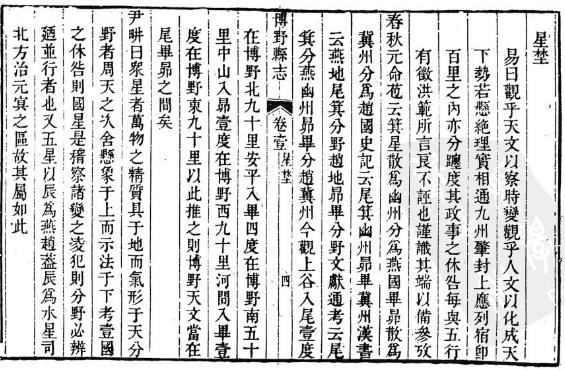 星埜
易曰觀乎天文以察時變觀乎人文以化成天
下勢若懸絶理實相通九州肇封上應列宿卽
百里之內亦分躔度其政事之休咎每與五行
有徵洪範所言良不誣也謹識其端以備參攷
春秋元命苞云箕星散爲幽州分爲燕國畢昴散爲
冀州分爲趙國史記云尾箕幽州昴畢冀州漢書
云燕地尾箕分野趙地昴畢分野文獻通考云尾
箕分燕幽州昴畢分趙冀州今觀上谷入尾壹度
博野縣志 卷壹 星埜 四
在博野北九十里安平入畢四度在博野南五十
里中山入昴壹度在博野西九十里河間入畢壹
度在博野東九十里以此推之則博野天文當在
尾畢昴之間矣
尹畊曰衆星者萬物之精質具于地而氣形于天分
野者周天之次舍懸象于上而示法于下考壹國
之休咎則國星是稽察諸變之凌犯則分野必辨
廼並行者也又五星以辰爲燕趙葢辰爲水星司
北方治元冥之區故其屬如此